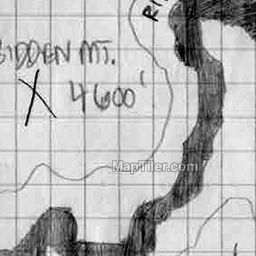 RI
IDDEN MT.
X 4600'
MapTiler.com